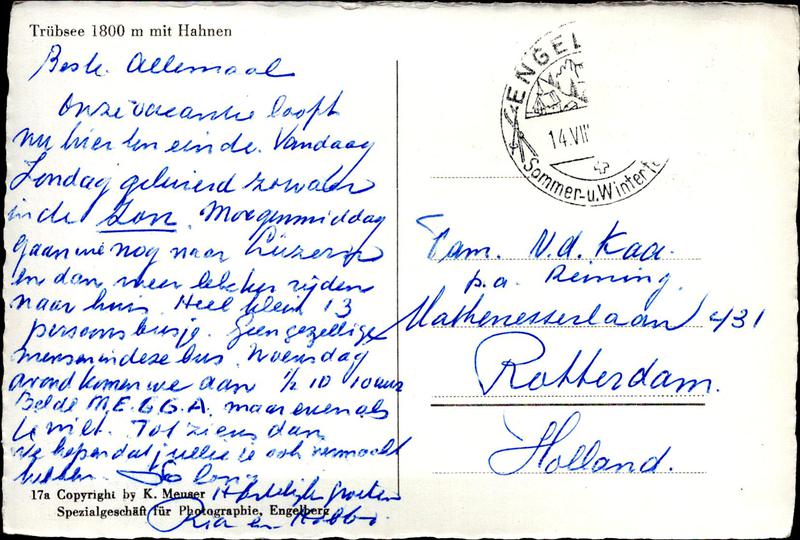 Trübsee 1800 m mit Hahnen
Beste Allemaal
Onze vacantie loopt
nu hier ten einde. Vandaag
Zondag geluierd zowaar
in de Zon. Morgenmiddag
gaan we nog naar Lüzern
en dan weer lekker rijden
naar huis. Heel klein 13
persoons busje. Geen gezellige
mensen in deze bus. Woensdag
avond komen we dan 1/2 10 10 uur
M.E.G.G.A. maar even als
je wilt. Tot ziens dan
we hopen dat jullie je ook vermaakt
hebben. So long
Hartelijke groeten
Ria en
17a Copyright by K. Meuser
Spezialgeschäft für Photographie, Engelberg
ENGEL
14.VII
Sommer-u.Winter
Fam. v.d. Kaa.
p.a. Reining.
Mathenesserlaan 431
Rotterdam.
Holland.